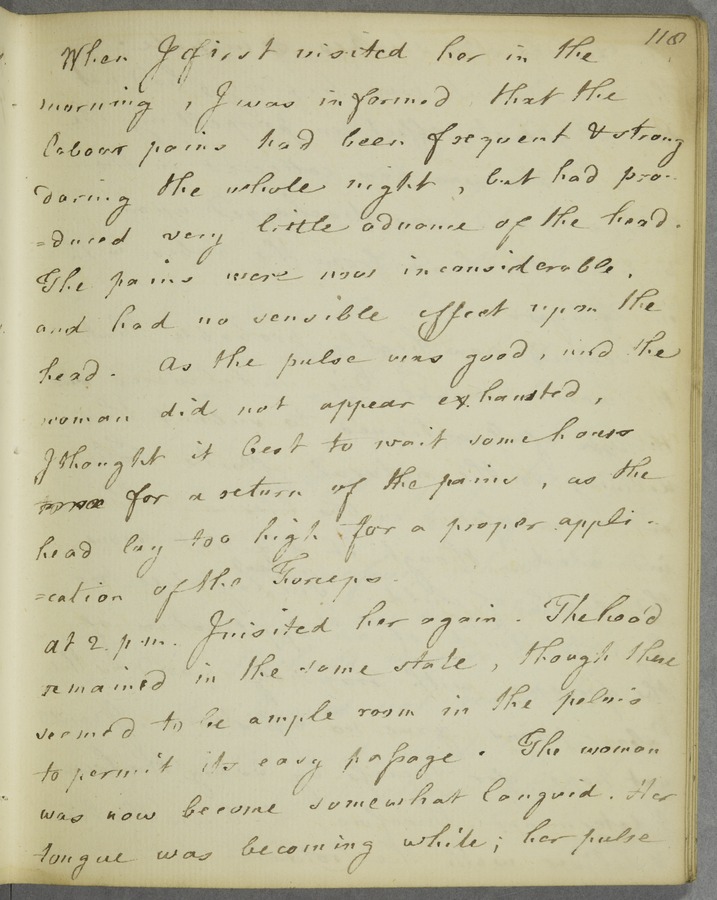 118
When I first visited her in the
morning, I was informed that the
labour pains had been frequent & strong
during the whole night, but had pro-
=duced very little advance of the head.
The pains were now inconsiderable,
and had no sensible effect upon the
head. As the pulse was good, and the
woman did not appear exhausted,
I thought it best to wait some hours
for a return of the pains, as the
head lay too high for a proper appli-
=cation of the Forceps.
at 2. p.m. I visited her again. The head
remained in the same state, though there
seemed to be ample room in the pelvis
to permit its easy passage. The woman
was now become somewhat languid. Her
tongue was becoming white; her pulse